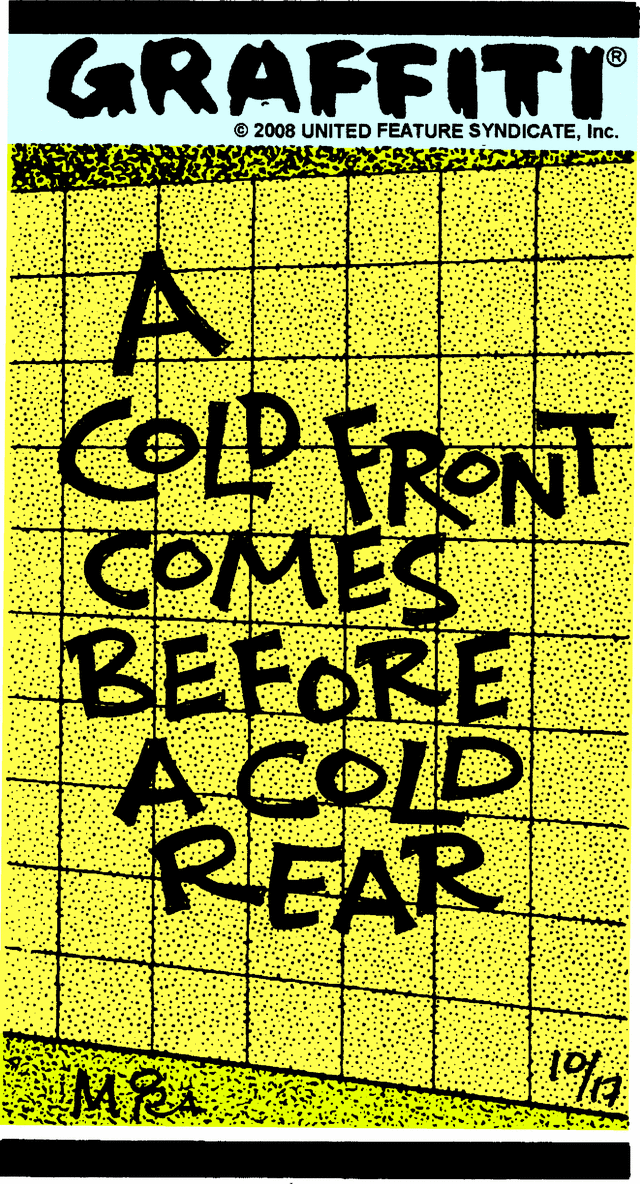 GRAFFITI®
© 2008 UNITED FEATURE SYNDICATE, Inc.
A
COLD FRONT
COMES
BEFORE
A COLD
REAR
10/17